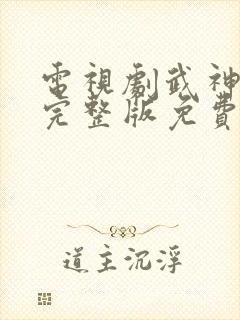 電視劇武神
完整版免費
道主沉浮